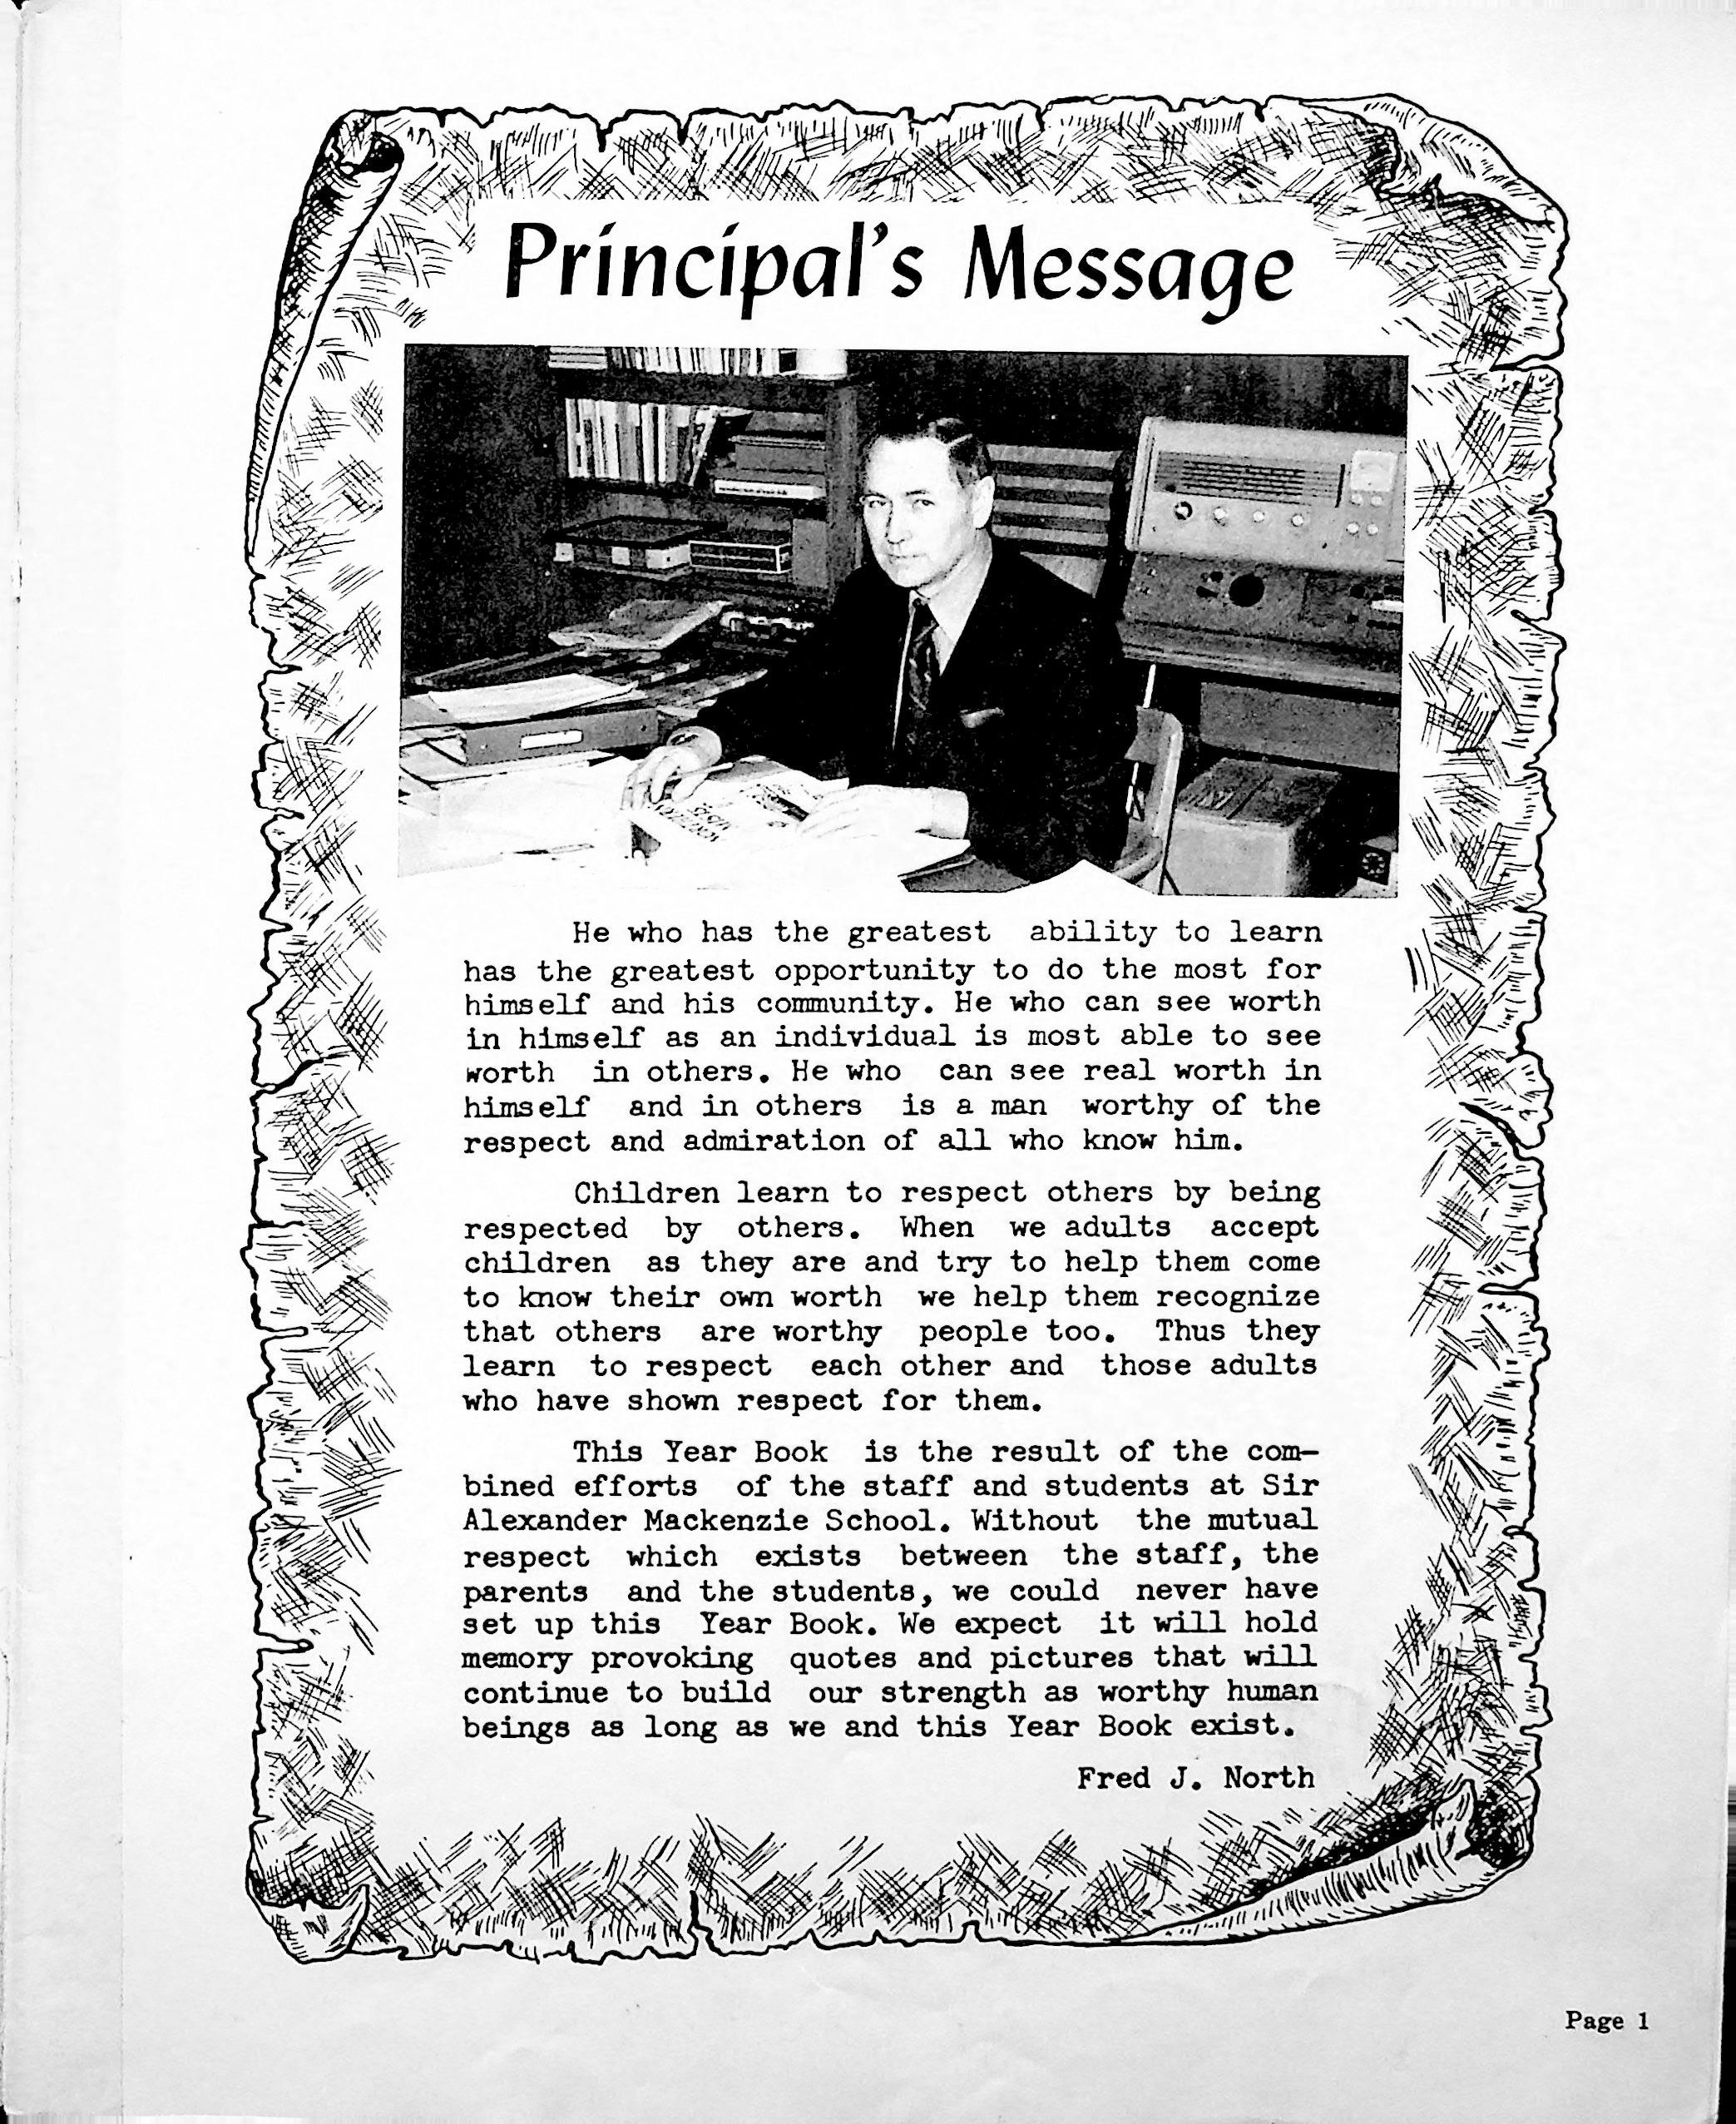 Principal's Message
He who has the greatest ability to learn
has the greatest opportunity to do the most for
himself and his community. He who can see worth
in himself as an individual is most able to see
worth in others. He who can see real worth in
himself and in others is a man worthy of the
respect and admiration of all who know him.
Children learn to respect others by being
respected by others. When we adults accept
children as they are and try to help them come
to know their own worth we help them recognize
that others are worthy people too. Thus they
learn to respect each other and those adults
who have shown respect for them.
This Year Book is the result of the com-
bined efforts of the staff and students at Sir
Alexander Mackenzie School. Without the mutual
respect which exists between the staff, the
parents and the students, we could never have
set up this Year Book. We expect it will hold
memory provoking quotes and pictures that will
continue to build our strength as worthy human
beings as long as we and this Year Book exist.
Fred J. North
Page 1